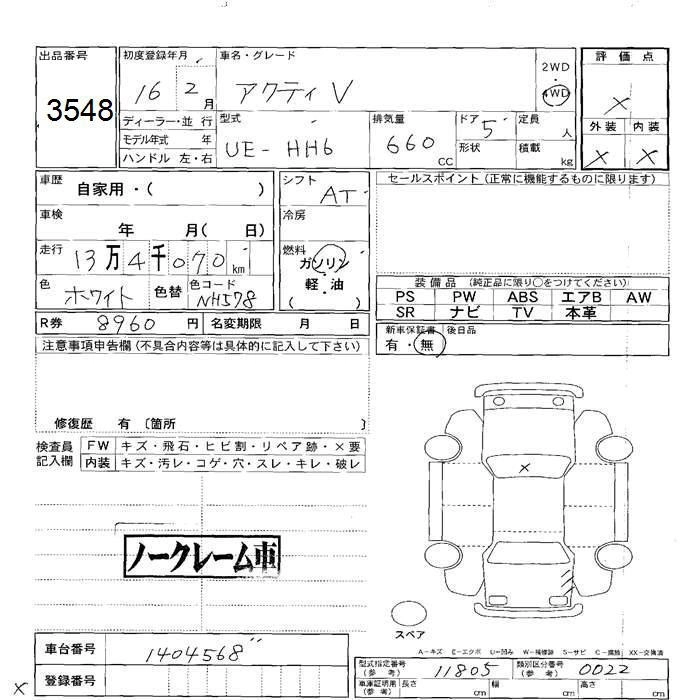 出品番号
3548
初度登録年月
16 2月
車名・グレード
アクティ V
2WD
・
4WD
評価点
X
外装 内装
X X
ディーラー・並行
モデル年式 年
ハンドル 左・右
型式
UE-HH6
排気量
660
CC
ドア 5
形状
定員 人
積載 kg
車歴
自家用・( )
車検
年 月( 日)
走行
13万4千070 km
色
ホワイト
色替
色コード
NH578
シフト
AT
冷房
燃料
ガソリン
軽・油
( )
セールスポイント (正常に機能するものに限ります)
装備品 (純正品に限り○をつけてください)
PS PW ABS エアB AW
SR ナビ TV 本革
新車保証書
有・無
後日品
R券 8960 円
名変期限 月 日
注意事項申告欄 (不具合内容等は具体的に記入して下さい)
修復歴 有 〔箇所 〕
検査員
記入欄
FW キズ・飛石・ヒビ割・リペア跡・×要
内装 キズ・汚レ・コゲ・穴・スレ・キレ・破レ
ノークレーム車
X
スペア
A-キズ E-エクボ U-凹み W-補修跡 S-サビ C-腐蝕 XX-交換済
車台番号
1404568
登録番号
X
型式指定番号
(参考)
11805
類別区分番号
(参考)
0022
車庫証明用
(参考)
長さ cm
幅 cm
高さ cm